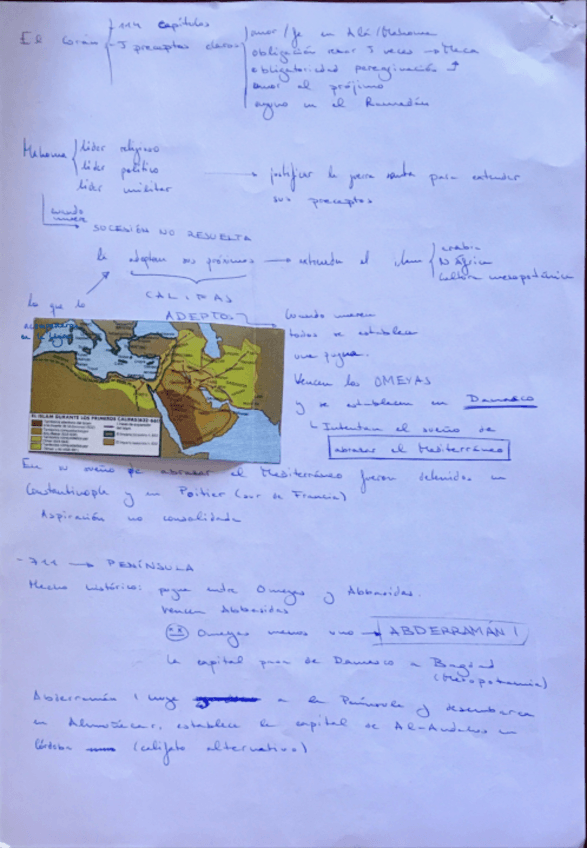 El Corán
114 capítulos
5 preceptos claros
amor/fe en Alá/Mahoma
obligación rezar 5 veces → Meca
obligatoriedad peregrinación
amor al prójimo
ayuno en el Ramadán
Mahoma
líder religioso
líder político
líder militar
→ justificar la guerra santa para extender
sus preceptos
cuando
muere
→ SUCESIÓN NO RESUELTA
la adoptan sus próximos → extienden el islam
Arabia
N África
cultura mesopotámica
lo que lo
CALIFAS
ADEPTOS
Cuando mueren
todos se establece
una pugna.
Vencen los OMEYAS
y se establecen en Damasco
Intentan el sueño de
abrazar el Mediterráneo
EL ISLAM DURANTE LOS PRIMEROS CALIFAS
En su sueño de abrazar el Mediterráneo fueron detenidos en
Constantinopla y en Poitier (sur de Francia)
Aspiración no consolidada
- 711 → PENÍNSULA
Hecho histórico: pugna entre Omeyas y Abbasidas.
Vencen Abbasidas
Omeyas menos uno → ABDERRAMÁN I
La capital pasa de Damasco a Bagdad
(Mesopotamia)
Abderramán I huye a la Península y desembarca
en Almuñécar, establece la capital de Al-Andalus en
Córdoba (califato alternativo)